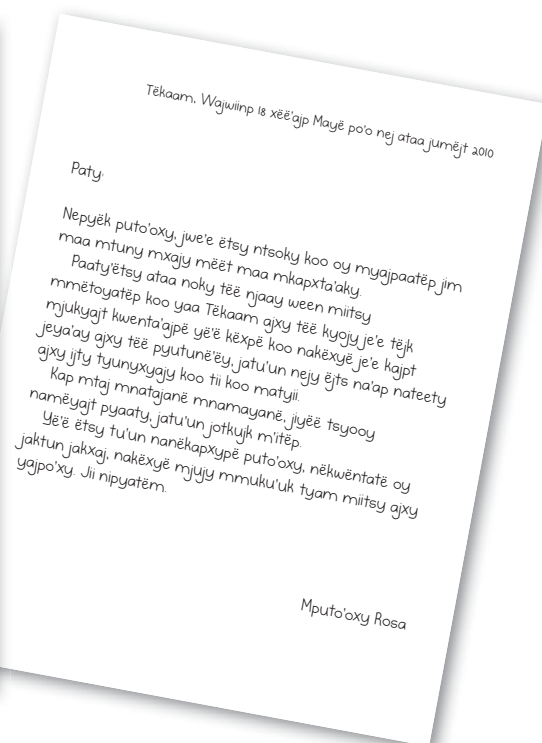 Tëkaam, Wajwiinp 18 xëë'ajp Mayë po'o nej ataa jumëjt 2010
Paty:
Nepyëk puto'oxy, jwe'e ëtsy ntsoky koo oy myajpaatëp jim
maa mtuny mxajy mëët maa mkapxta'aky.
Paaty'ëtsy ataa noky tëë njaay ween miitsy
mmëtoyatëp koo yaa Tëkaam ajxy tëë kyojy je'e tëjk
mjukyajt kwenta'ajpë yë'ë këxpë koo nakëxyë je'e kajpt
jeya'ay ajxy tëë pyutunë'ëy, jatu'un nejy ëjts na'ap nateety
ajxy ijty tyunyxyajy koo tii koo matyii.
Kap mtaj mnatajanë mnamayanë, jiyëë tsyooy
namëyajt pyaaty, jatu'un jotkujk m'itëp.
Yë'ë ëtsy tu'un nanëkapxypë puto'oxy, nëkwëntatë oy
jaktun jakxaj, nakëxyë mjyjy mmuku'uk tyam miitsy ajxy
yajpo'xy. Jii nipyatëm.
Mputo'oxy Rosa